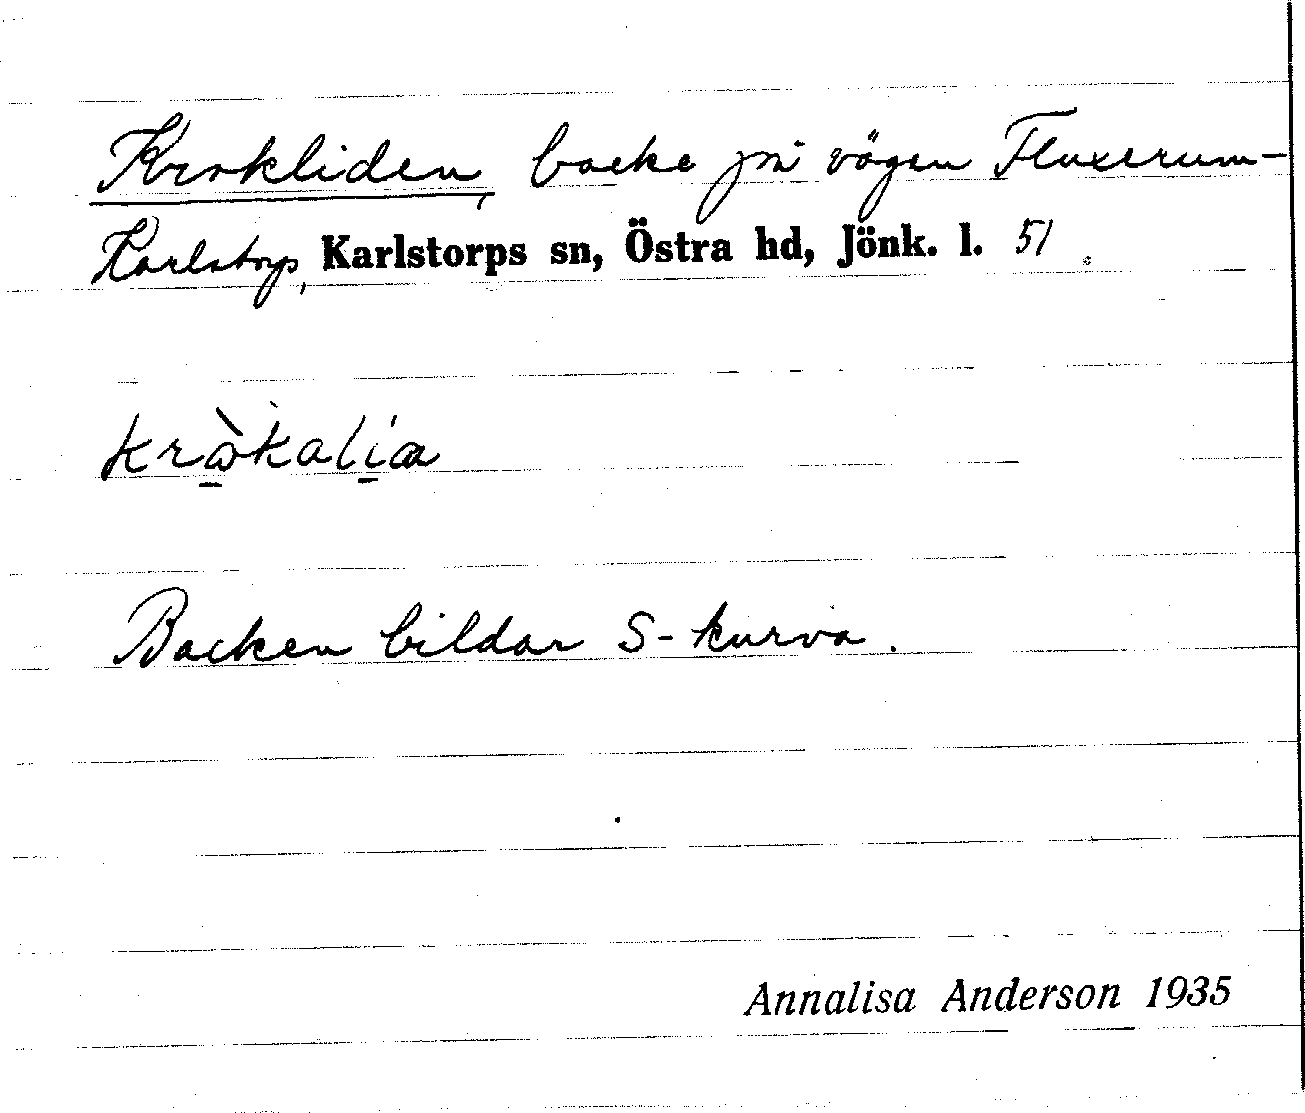 Krokliden, backe på vägen Fluxerum-
Karlstorp, Karlstorps sn, Östra hd, Jönk. l. 51.
Backen bildar S-kurva.
Annalisa Anderson 1935